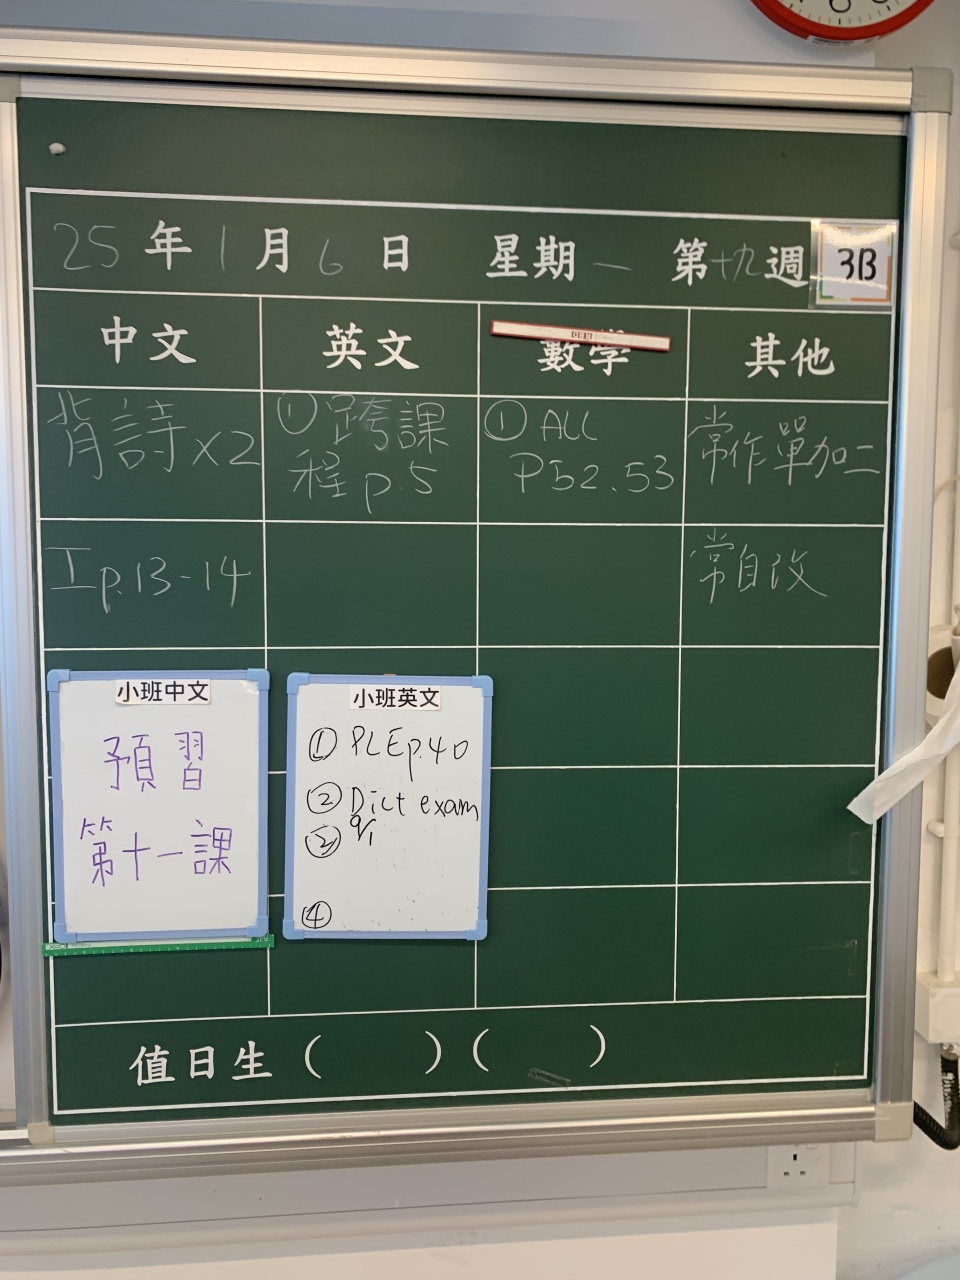 25年1月6日 星期一 第十九週 3B
中文 英文 數學 其他
背詩x2
①跨課
程p.5
① ALL
P.52.53
常作單加二
工p.13-14
常自改
小班中文
預習
第十一課
小班英文
① PLE p.40
② Dict exam
9/1
③
④
值日生（ ）（ ）